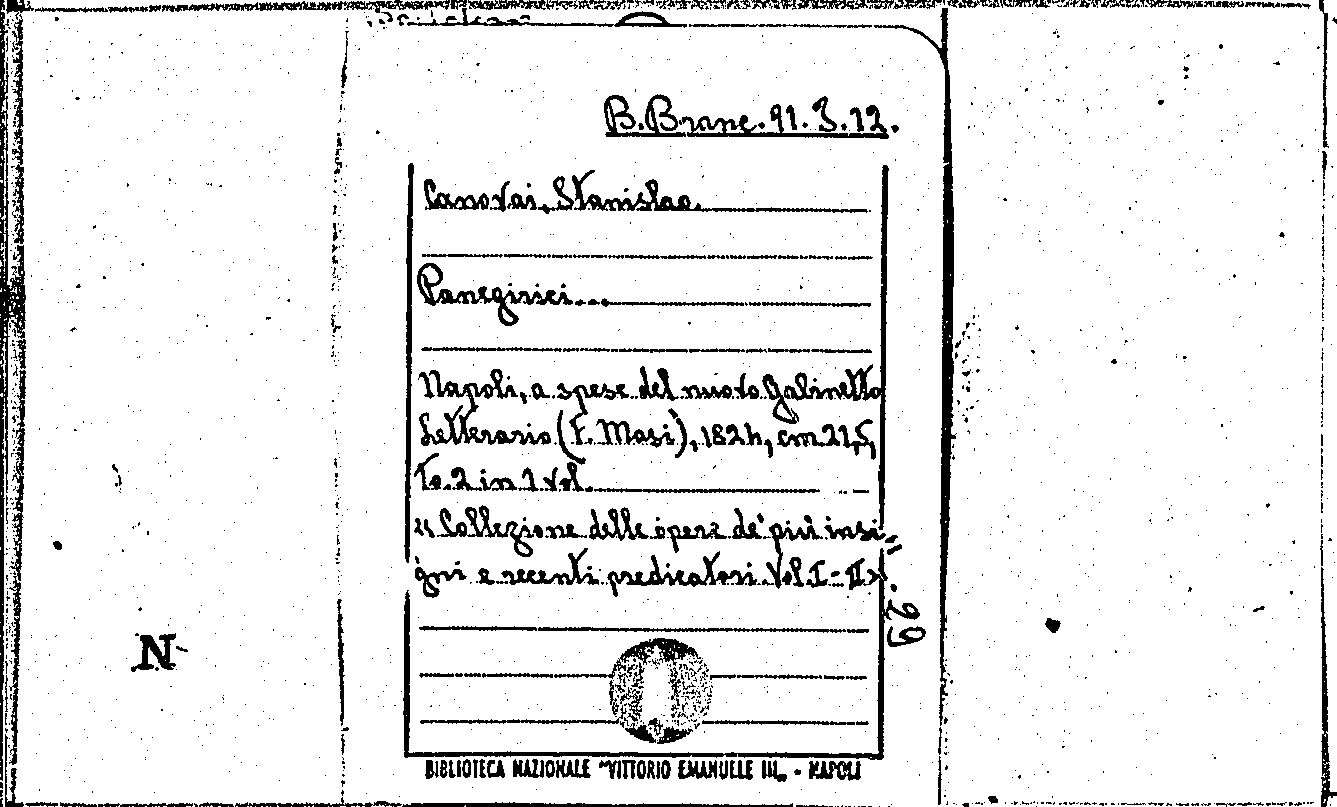 B. Branc. 91. J. 12.
Canovai, Stanislao.
Panegirici...
Napoli, a spese del nuovo Gabinetto
Letterario (F. Masi), 1824, cm. 21,5,
To. 2 in 1 vol.
« Collezione delle opere de' più insi"
gni e recenti predicatori. Vol. I - II».
29
N
BIBLIOTECA NAZIONALE "VITTORIO EMANUELE III„ - NAPOLI